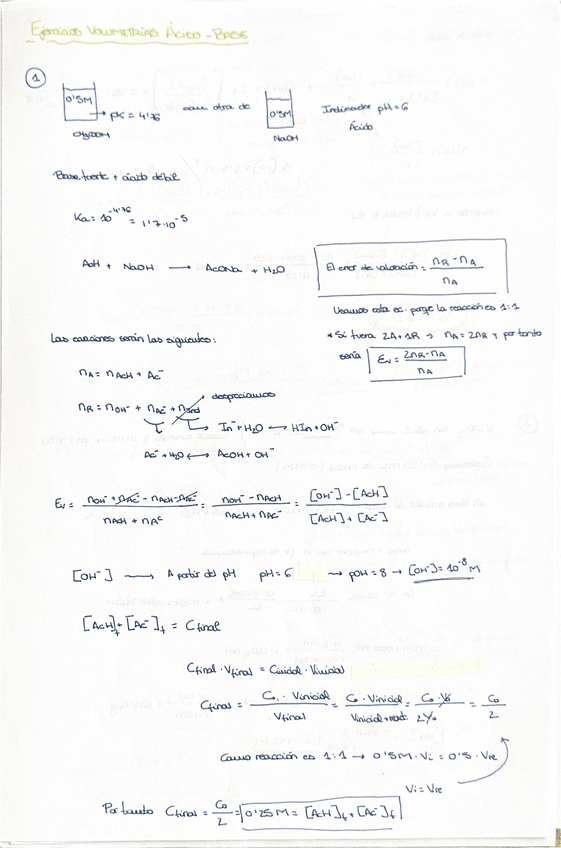 Ejercicios VOLUMETRÍAS ÁCIDO-BASE
1
0'5M → pK = 4'76 con otra de 0'5M Indicador pH = 6
CH3COOH NaOH Ácido
Base fuerte + ácido débil
Ka = 10^-4'76 = 1'7·10^-5
AcH + NaOH → AcONa + H2O
El error de valoración = (nR - nA) / nA
Usamos esta ec. porque la reacción es 1:1
* Si fuera 2A + 1R → nA = 2nR y por tanto
sería Ev = (2nR - nA) / nA
Las ecuaciones serán las siguientes:
nA = nAcH + Ac-
nR = nOH- + nAc- + nInd → despreciamos
In- + H2O ↔ HIn + OH-
Ac- + H2O ↔ AcOH + OH-
Ev = (nOH- + nAc- - nAcH - nAc-) / (nAcH + nAc-) = (nOH- - nAcH) / (nAcH + nAc-) = ([OH-] - [AcH]) / ([AcH] + [Ac-])
[OH-] → A partir del pH pH = 6 → pOH = 8 → [OH-] = 10^-8 M
[AcH]f + [Ac-]f = Cfinal
Cfinal · Vfinal = Cinicial · Vinicial
Cfinal = (C0 · Vinicial) / Vfinal = (C0 · Vinicial) / (Vinicial + react.) = (C0 · V0) / 2V0 = C0 / 2
Como reacción es 1:1 → 0'5M · Vi = 0'5 · Vre
Vi = Vre
Por tanto Cfinal = C0 / 2 = 0'25M = [AcH]f + [Ac-]f